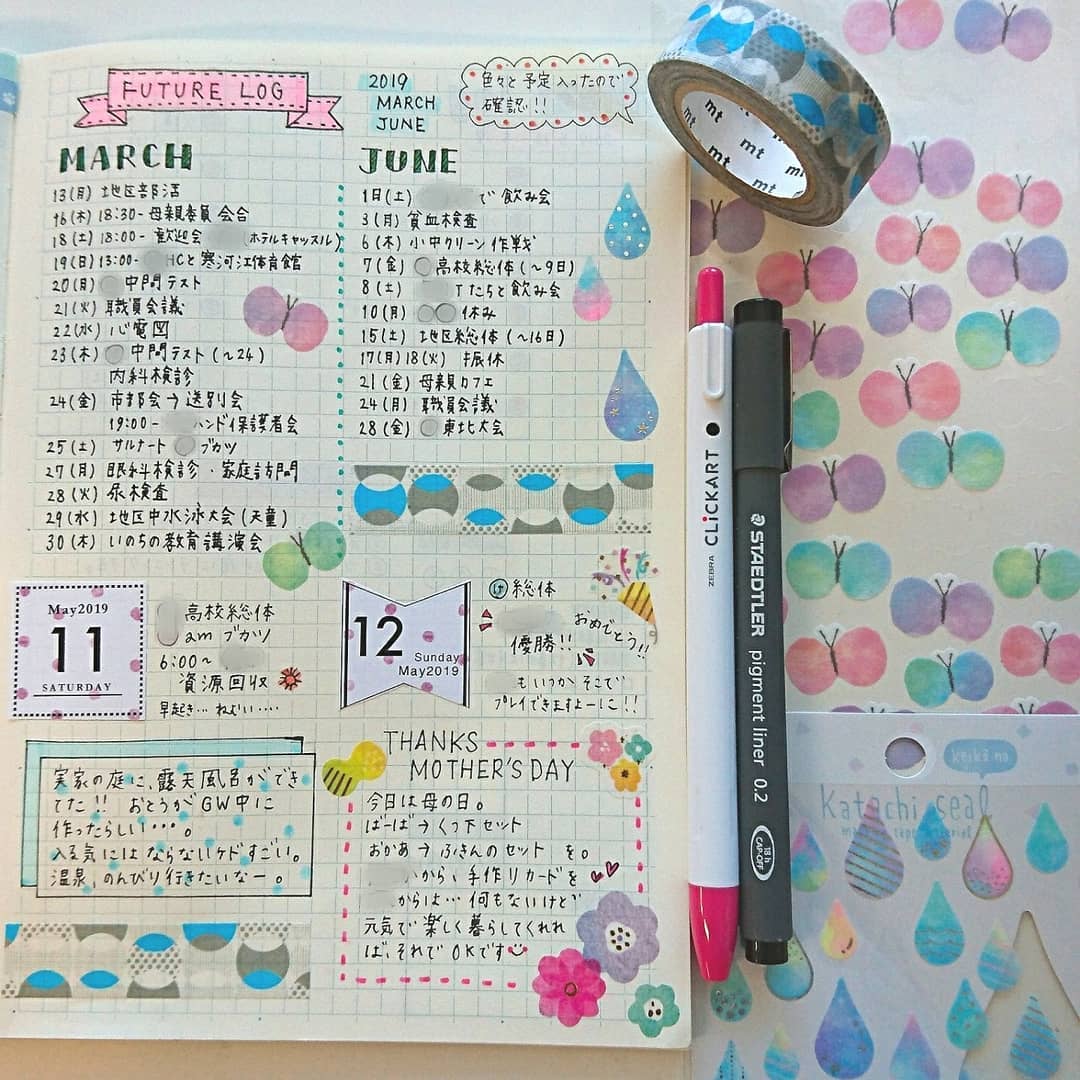 FUTURE LOG
2019
MARCH
JUNE
色々と予定入ったので
確認!!
MARCH
13(月) 地区部活
16(木) 18:30- 母親委員会合
18(土) 18:00- 歓迎会 ホテルキャッスル)
19(日) 13:00- HCと寒河江体育館
20(月) 中間テスト
21(火) 職員会議
22(水) 心電図
23(木) 中間テスト(~24)
内科検診
24(金) 市都会→送別会
19:00- ハンド保護者会
25(土) サルナート ブカツ
27(月) 眼科検診・家庭訪問
28(火) 尿検査
29(水) 地区中水泳大会(天童)
30(木) いのちの教育講演会
JUNE
1日(土) で飲み会
3(月) 貧血検査
6(木) 小中クリーン作戦
7(金) 高校総体(~9日)
8(土) Tたちと飲み会
10(月) 休み
15(土) 地区総体(~16日)
17(月)18(火) 振休
21(金) 母親カフェ
24(月) 職員会議
28(金) 東北大会
May2019
11
SATURDAY
高校総体
am ブカツ
6:00~
資源回収
早起き…ねむい‥‥
12
Sunday
May2019
総体
おめでとう!!
優勝!!
もいつかそこで
プレイできますよーに!!
実家の庭に、露天風呂ができ
てた!! おとうがGW中に
作ったらしい…。
入る気にはならないケドすごい。
温泉、のんびり行きたいなー。
THANKS
MOTHER'S DAY
今日は母の日。
ばーば→くつ下セット
おかあ→ふきんのセット を。
から、手作りカードを
からは…何もないけど
元気で楽しく暮らしてくれれ
ば、それでOKです
mt
mt
mt
mt
ZEBRA CLiCKART
STAEDTLER pigment liner 0.2
18h
CAP-OFF
keikana
Katachi seal